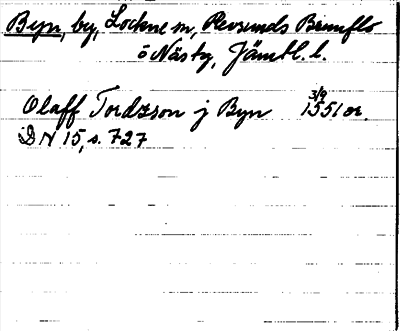 Byn, by, Lockne sn, Revsunds Brunflo
o Näs tg, Jämtl. l.
3/9
Olaff Tordzson j Byn 1551 or.
DN 15, s. 727